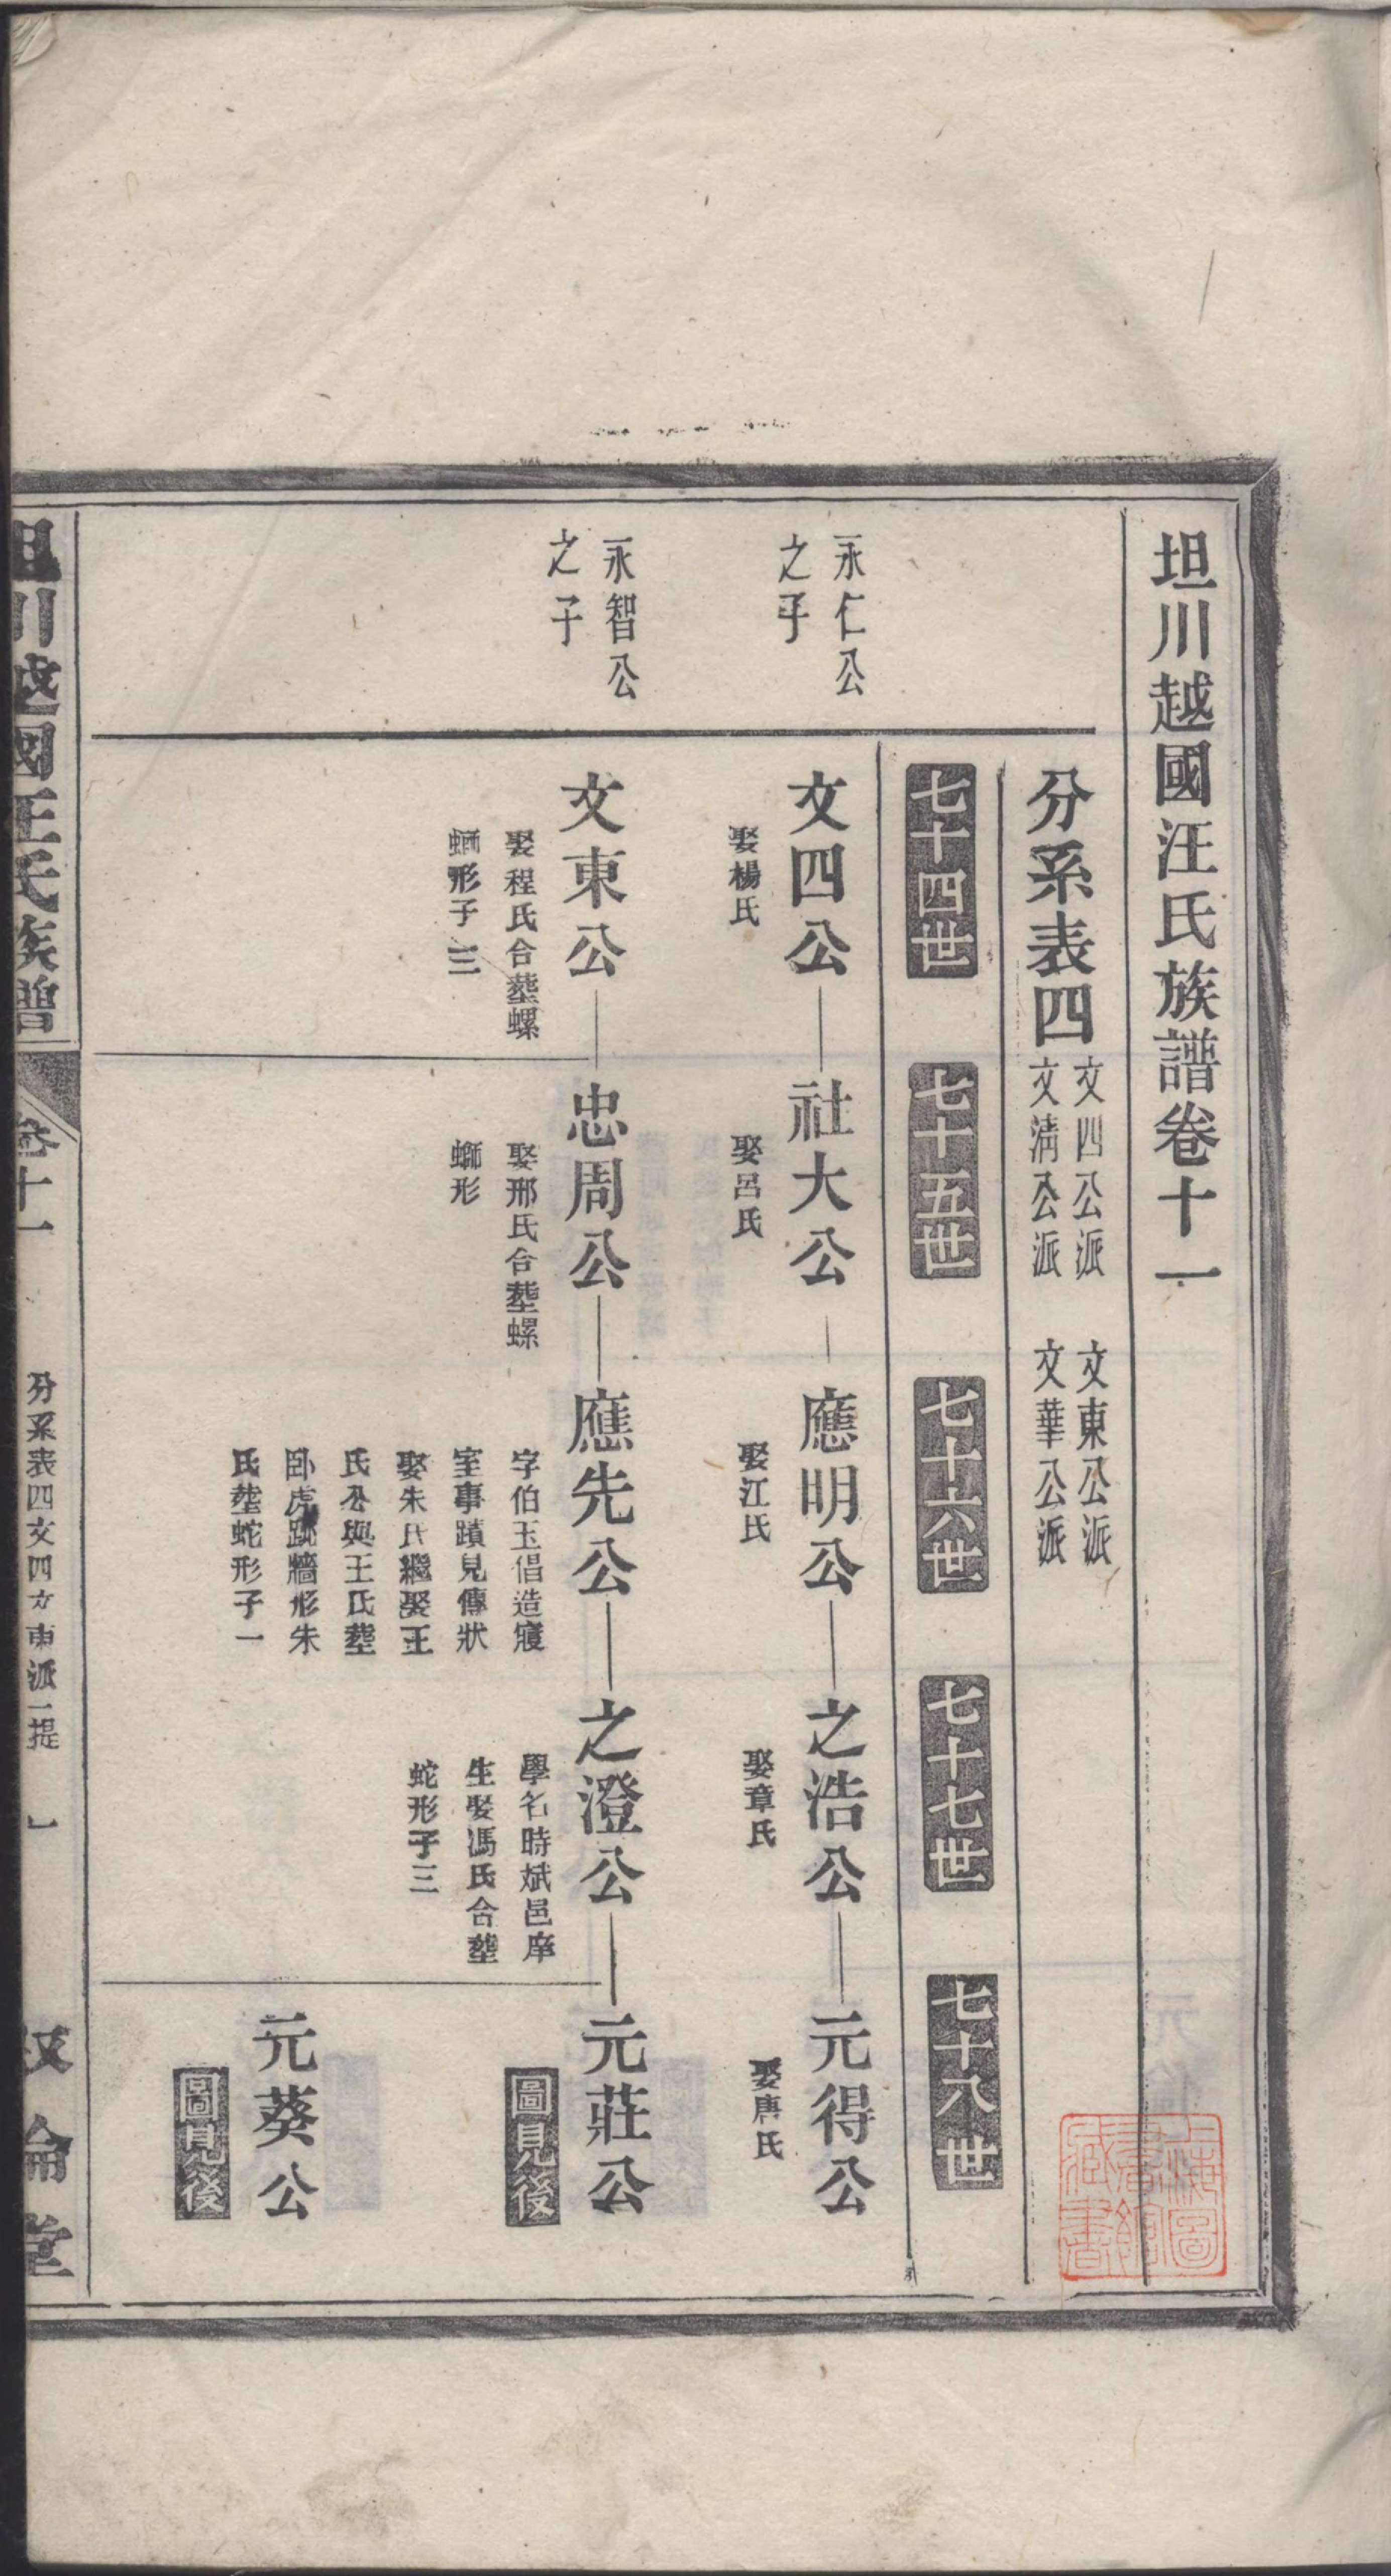 坦川越國汪氏族譜卷十一
分系表四
文四公派
文清公派
文東公派
文華公派
七十四世
七十五世
七十六世
七十七世
七十八世
永仁公
之子
文四公
娶楊氏
社大公
娶呂氏
應明公
娶江氏
之浩公
娶章氏
元得公
娶唐氏
永智公
之子
文東公
娶程氏合塟螺
螄形子三
忠周公
娶邢氏合塟螺
螄形
應先公
字伯玉倡造寢
室事蹟見傳狀
娶朱氏繼娶王
氏公與王氏塟
卧虎跳牆形朱
氏塟蛇形子一
之澄公
學名時斌邑庠
生娶馮氏合塟
蛇形子三
元莊公
圖見後
元葵公
圖見後
坦川越國汪氏族譜
卷十一
分系表四文四文東派一提
敘倫堂